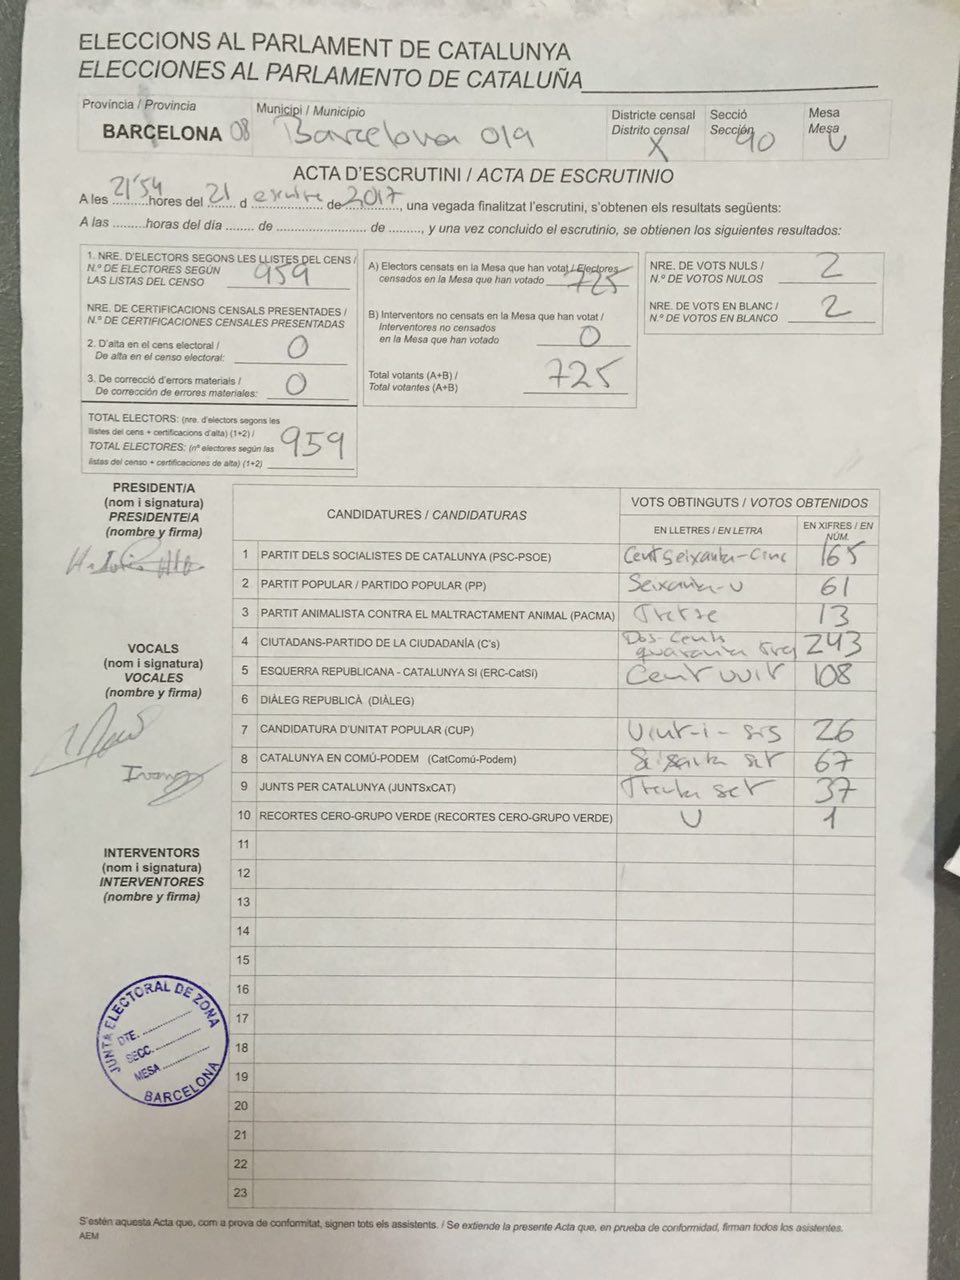 ELECCIONS AL PARLAMENT DE CATALUNYA
ELECCIONES AL PARLAMENTO DE CATALUÑA
Província / Provincia
BARCELONA 08
Municipi / Municipio
Barcelona 019
Districte censal
Distrito censal
X
Secció
Sección
90
Mesa
Mesa
U
ACTA D'ESCRUTINI / ACTA DE ESCRUTINIO
A les 21'54 hores del 21 d de 2017, una vegada finalitzat l'escrutini, s'obtenen els resultats següents:
A las .........horas del día ........ de ......................... de ........., y una vez concluido el escrutinio, se obtienen los siguientes resultados:
1. NRE. D'ELECTORS SEGONS LES LLISTES DEL CENS /
N.º DE ELECTORES SEGÚN
LAS LISTAS DEL CENSO 959
NRE. DE CERTIFICACIONS CENSALS PRESENTADES /
N.º DE CERTIFICACIONES CENSALES PRESENTADAS
2. D'alta en el cens electoral /
De alta en el censo electoral: 0
3. De correcció d'errors materials /
De corrección de errores materiales: 0
TOTAL ELECTORS: (nre. d'electors segons les
llistes del cens + certificacions d'alta) (1+2) /
TOTAL ELECTORES: (nº electores según las
listas del censo + certificaciones de alta) (1+2)
959
A) Electors censats en la Mesa que han votat / Electores
censados en la Mesa que han votado 725
B) Interventors no censats en la Mesa que han votat /
Interventores no censados
en la Mesa que han votado 0
Total votants (A+B) /
Total votantes (A+B) 725
NRE. DE VOTS NULS /
N.º DE VOTOS NULOS 2
NRE. DE VOTS EN BLANC /
N.º DE VOTOS EN BLANCO 2
PRESIDENT/A
(nom i signatura)
PRESIDENTE/A
(nombre y firma)
VOCALS
(nom i signatura)
VOCALES
(nombre y firma)
INTERVENTORS
(nom i signatura)
INTERVENTORES
(nombre y firma)
CANDIDATURES / CANDIDATURAS
VOTS OBTINGUTS / VOTOS OBTENIDOS
EN LLETRES / EN LETRA
EN XIFRES / EN NÚM.
1 PARTIT DELS SOCIALISTES DE CATALUNYA (PSC-PSOE) Cent seixanta-cinc 165
2 PARTIT POPULAR / PARTIDO POPULAR (PP) Seixanta-u 61
3 PARTIT ANIMALISTA CONTRA EL MALTRACTAMENT ANIMAL (PACMA) Tretze 13
4 CIUTADANS-PARTIDO DE LA CIUDADANÍA (C's) Dos-cents quaranta tres 243
5 ESQUERRA REPUBLICANA - CATALUNYA SÍ (ERC-CatSí) Cent vuit 108
6 DIÀLEG REPUBLICÀ (DIÀLEG)
7 CANDIDATURA D'UNITAT POPULAR (CUP) Vint-i-sis 26
8 CATALUNYA EN COMÚ-PODEM (CatComú-Podem) Seixanta set 67
9 JUNTS PER CATALUNYA (JUNTSxCAT) Trenta set 37
10 RECORTES CERO-GRUPO VERDE (RECORTES CERO-GRUPO VERDE) U 1
11
12
13
14
15
16
17
18
19
20
21
22
23
JUNTA ELECTORAL DE ZONA
DTE. ..............
SECC. ..............
MESA ..............
BARCELONA
S'estén aquesta Acta que, com a prova de conformitat, signen tots els assistents. / Se extiende la presente Acta que, en prueba de conformidad, firman todos los asistentes.
AEM